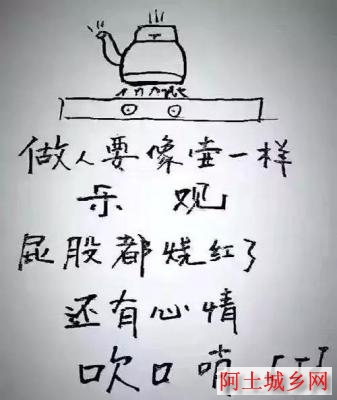 做人要像壶一样
乐观
屁股都烧红了
还有心情
吹口哨
阿土城乡网